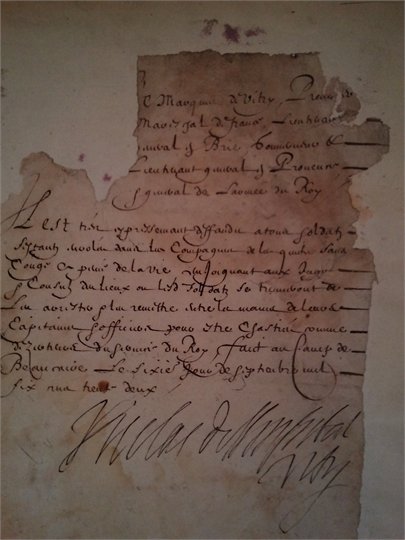 e Marquis de Vitry, Premier
Mareschal de france, Lieutenant
general en Brie Gouverneur &
Lieutenant general en Provence
& general de Larmee du Roy
Il est tres expressement deffandu a tous soldatz
sestantz enrolez dans les Compagnies de la quiter sans
Congé a peine de la vie enjoignant aux Juges
& Consulz des lieux ou lesd soldatz se trouveront de
Les arrester & les remettre entre les mains de leurs
Capitaines & officiers pour estre Chastiez comme
dezerteurs du service du Roy, faict au Camp de
Beaucaire Le sixie jour de septembre mil
six cens trente deux
Nicolas de Lhospital
Vitry